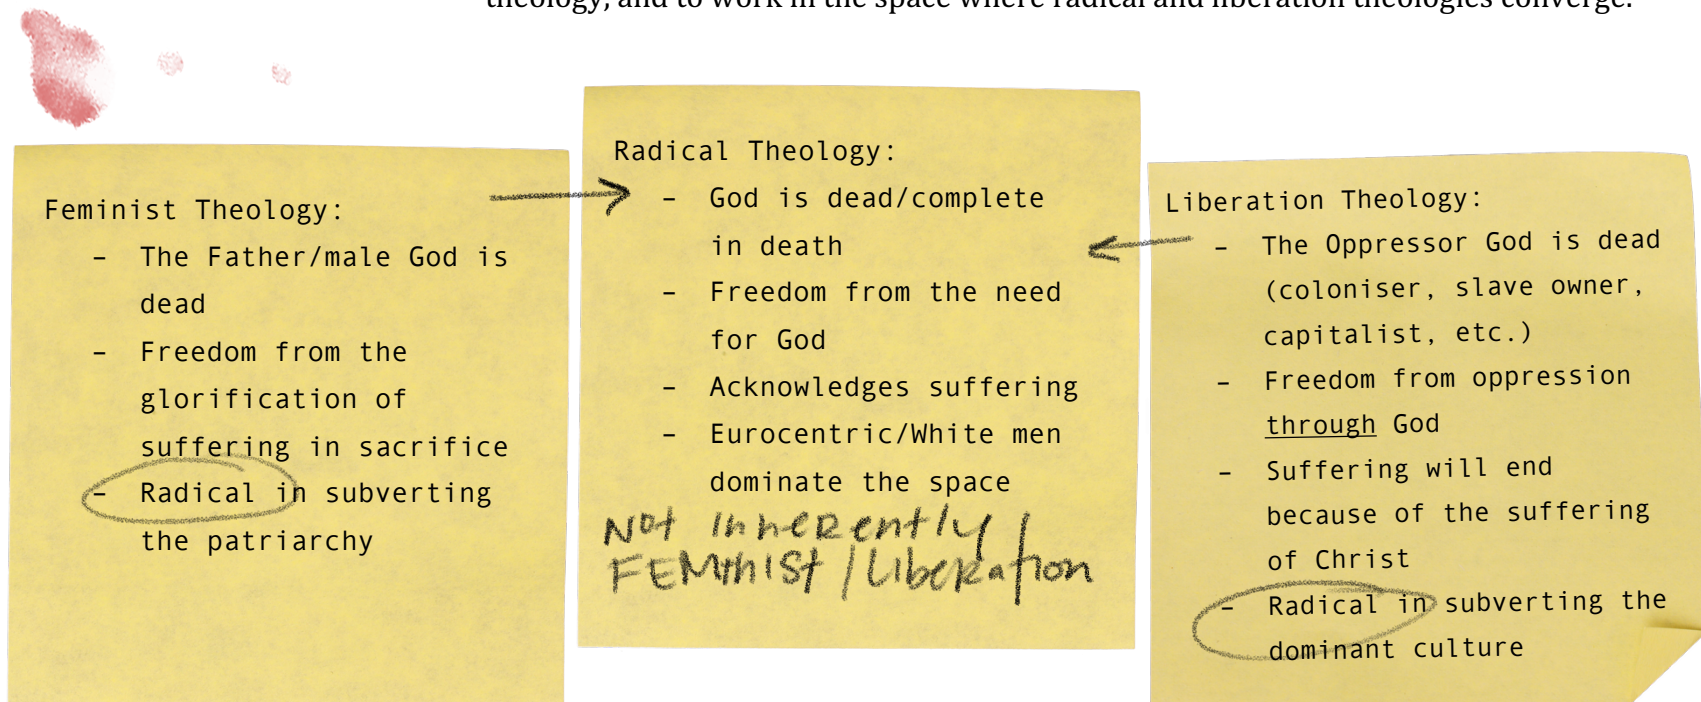 theology, and to work in the space where radical and liberation theologies converge.
Feminist Theology:
- The Father/male God is
dead
- Freedom from the
glorification of
suffering in sacrifice
- Radical in subverting
the patriarchy
Radical Theology:
- God is dead/complete
in death
- Freedom from the need
for God
- Acknowledges suffering
- Eurocentric/White men
dominate the space
Not inherently /
FEMINIST / Liberation
Liberation Theology:
- The Oppressor God is dead
(coloniser, slave owner,
capitalist, etc.)
- Freedom from oppression
through God
- Suffering will end
because of the suffering
of Christ
- Radical in subverting the
dominant culture